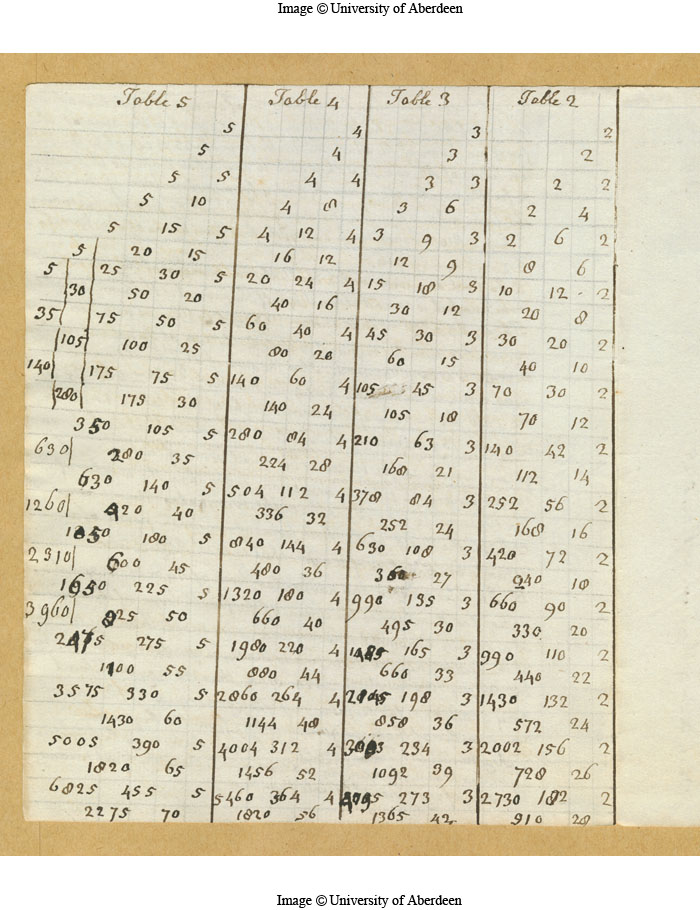 Image © University of Aberdeen
Table 5 Table 4 Table 3 Table 2
5 4 3 2
5 4 3 2
5 5 4 4 3 3 2 2
5 10 4 8 3 6 2 4
5 15 5 4 12 4 3 9 3 2 6 2
5 20 15 16 12 12 9 8 6
5 25 30 5 20 24 4 15 18 3 10 12 2
30 50 20 40 16 30 12 20 8
35 75 50 5 60 40 4 45 30 3 30 20 2
105 100 25 80 20 60 15 40 10
140 175 75 5 140 60 4 105 45 3 70 30 2
280 175 30 140 24 105 18 70 12
350 105 5 280 84 4 210 63 3 140 42 2
630 280 35 224 28 168 21 112 14
630 140 5 504 112 4 378 84 3 252 56 2
1260 420 40 336 32 252 24 168 16
1050 180 5 840 144 4 630 108 3 420 72 2
2310 600 45 480 36 360 27 240 18
1650 225 5 1320 180 4 990 135 3 660 90 2
3960 825 50 660 40 495 30 330 20
2475 275 5 1980 220 4 1485 165 3 990 110 2
1100 55 880 44 660 33 440 22
3575 330 5 2860 264 4 2145 198 3 1430 132 2
1430 60 1144 48 858 36 572 24
5005 390 5 4004 312 4 3003 234 3 2002 156 2
1820 65 1456 52 1092 39 728 26
6825 455 5 5460 364 4 4095 273 3 2730 182 2
2275 70 1820 56 1365 42 910 28
Image © University of Aberdeen